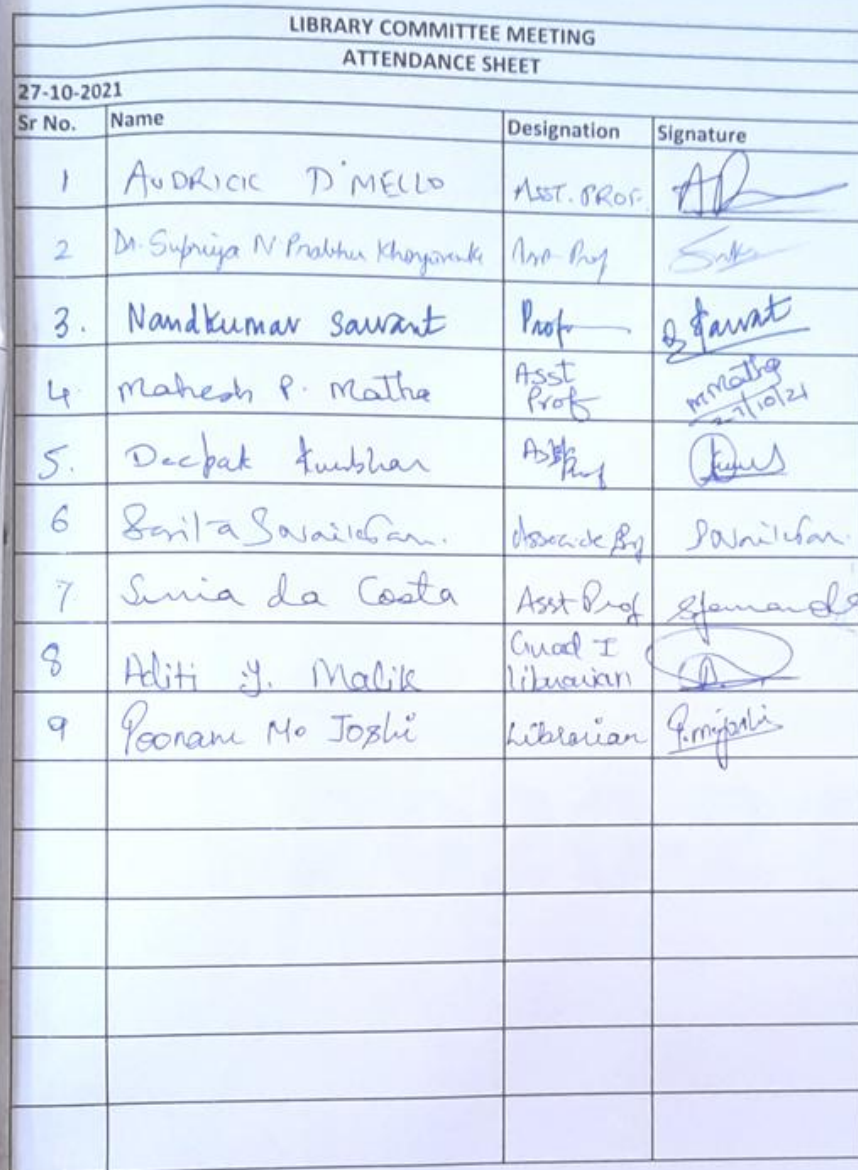 LIBRARY COMMITTEE MEETING
ATTENDANCE SHEET
27-10-2021
Sr No. Name Designation Signature
1 AUDRICK D'MELLO ASST. PROF.
2 Dr. Supriya N Prabhu Prof
3. Nandkumar Sawant Prof Sawant
4 Mahesh P. Matha Asst Prof M Matha 27/10/21
5. Deepak Kumbhar Prof
6 Associate Prof
7 da Costa Asst Prof Sfernandes
8 Aditi Y. Malik I librarian
9 Poonam M. Joshi Librarian P.m.joshi